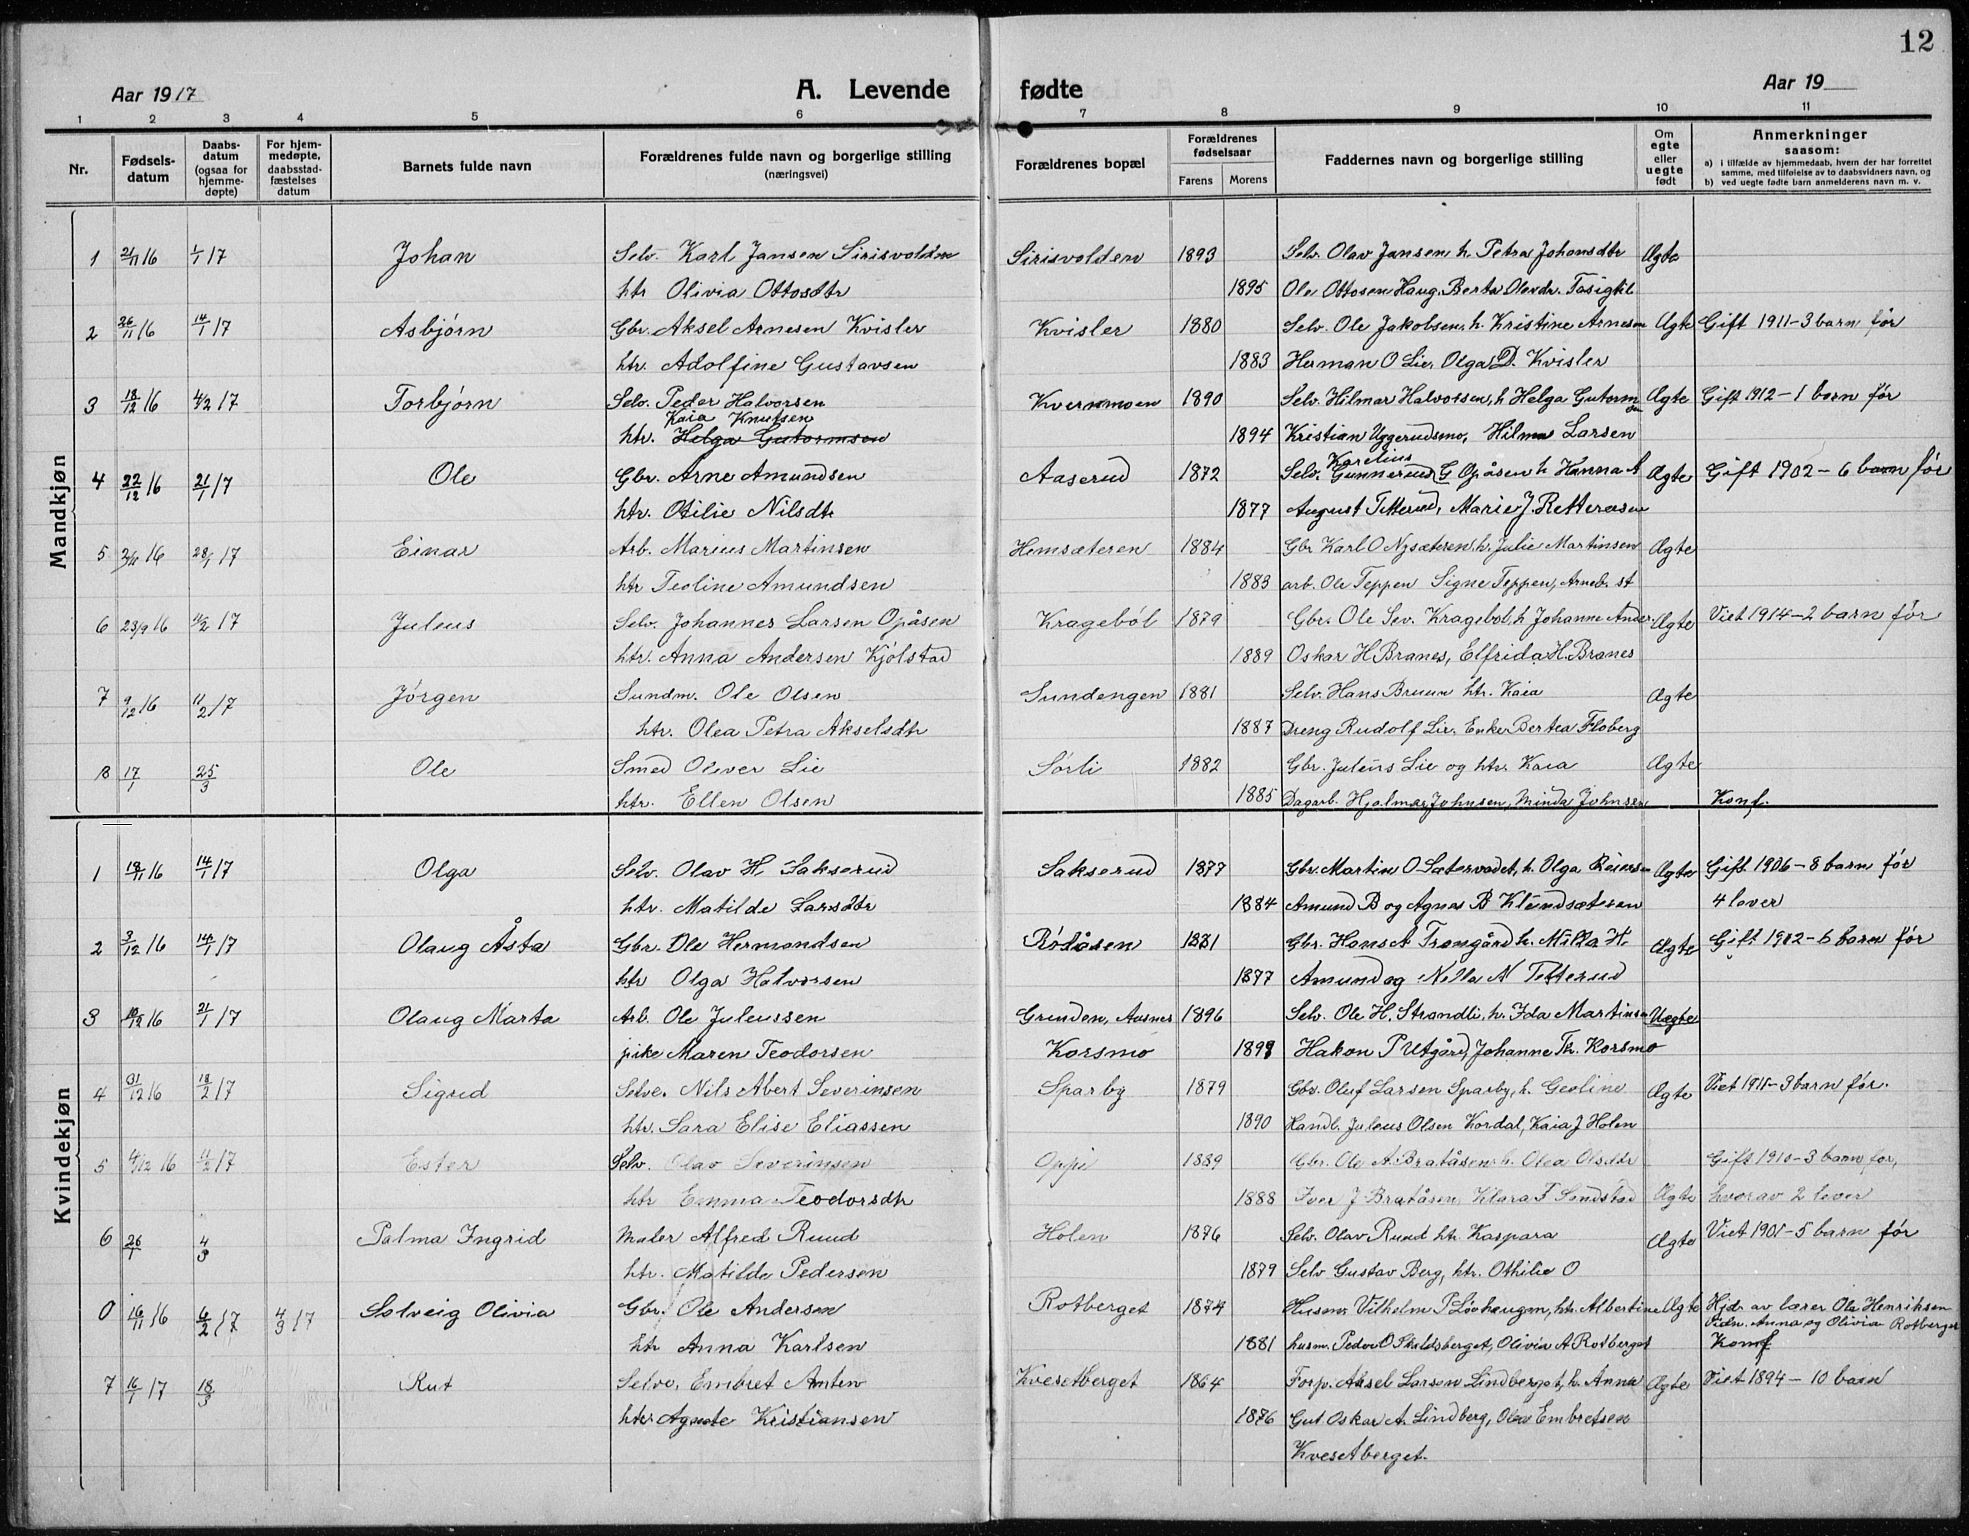 12
Aar 1917 A. Levende fødte Aar 19
1 2 3 4 5 6 7 8 9 10 11
Nr. Fødsels-datum Daabs-datum (ogsaa for hjemme-døpte) For hjem-medøpte, daabsstad-fæstelses datum Barnets fulde navn Forældrenes fulde navn og borgerlige stilling (næringsvei) Forældrenes bopæl Forældrenes fødselsaar Farens Morens Faddernes navn og borgerlige stilling Om egte eller uegte født Anmerkninger saasom: a) i tilfælde av hjemmedaab, hvem der har forrettet samme, med tilføielse av to daabsvidners navn, og b) ved uegte fødte barn anmelderens navn m. v.
Mandkjøn
1 21/11 16 1/1 17 Johan Selv. Karl Jansen Sirisvolden Sirisvolden 1893 Selv. Olav Jansen, h. Petra Johansdtr Ægte
htr Olivia Ottosdtr 1895 Ole Ottosen Haug. Berta Olavdr.
2 26/11 16 14/1 17 Asbjørn Gbr. Aksel Arnesen Kvisler Kvisler 1880 Selv. Ole Jakobsen, h. Kristine Arnesen Ægte Gift 1911-3 barn før
htr. Adolfine Gustavsen 1883 Herman O Lie, Olga D. Kvisler
3 18/12 16 4/2 17 Torbjørn Selv. Peder Halvorsen Kvernmoen 1890 Selv. Hilmar Halvorsen, h Helga Gutormsen Ægte Gift 1912-1 barn før
Kaia Knutsen
htr. Helga Gutormsen 1894 Kristian Uggerudsmo, Hilma Larsen
4 22/12 16 21/1 17 Ole Gbr. Arne Amundsen Aaserud 1872 Selv. Karelius Gunnerud, G Opåsen h Hanna A Ægte Gift 1902-6 barn før
htr. Otilie Nilsdtr 1877 August Tetterud, Marie J. Retteråsen
5 16 28/1 17 Einar Arb. Marius Martinsen Hemsæteren 1884 Gbr Karl O Nysæteren, h. Julie Martinsen Ægte
htr Teoline Amundsen 1883 arb. Ole Teppen Signe Teppen,
6 23/9 16 11/2 17 Juleus Selv. Johannes Larsen Opåsen Kragebøl 1879 Gbr. Ole Sev. Kragebøl, h Johanne Ander. Ægte Viet 1914-2 barn før
htr. Anna Andersen Kjølstad 1889 Oskar H Branes, Elfrida H. Branes
7 9/12 16 11/2 17 Jørgen Sundm. Ole Olsen Sundengen 1881 Selv. Hans Bruun htr. Kaia Ægte
htr. Olea Petra Akselsdtr 1887 Dreng Rudolf Lie. Enke Bertea Floberg
8 17/1 25/3 Ole Smed Oliver Lie Sørli 1882 Gbr. Juleus Lie og htr. Kaia Ægte
htr. Ellen Olsen 1885 Dagarb. Hjalmar Johnsen, Minda Johnsen Konf.
Kvindekjøn
1 18/11 16 14/1 17 Olga Selv. Olav H. Sakserud Sakserud 1877 Gbr. Martin O Sætervadet, h. Olga Reiersen Ægte Gift 1906-8 barn før
htr. Matilde Larsdtr 1884 Amund B og Agnes B Klundsæteren 4 lever
2 3/12 16 14/1 17 Olaug Åsta Gbr. Ole Hermandsen Rødåsen 1881 Gbr. Hans A Trangård h. Milla H. Ægte Gift 1902-6 barn før
htr Olga Halvorsen 1877 Amund og Nilla N Tetterud
3 16 21/1 17 Olaug Marta Arb. Ole Juleussen Grinden, Aasnes 1896 Selv. Ole H. Strandli, h. Ida Martinsen Uægte
pike Maren Teodorsen Korsmo 1898 Hakon P Utgård, Johanne Th. Korsmo
4 31/12 16 18/2 17 Sigrid Selve. Nils Abert Severinsen Sparby 1879 Gbr. Oluf Larsen Sparby, h. Geoline Ægte Viet 1911-3 barn før.
htr. Sara Elise Eliassen 1890 Handl. Juleus Olsen Kordal, Kaia J Holen
5 4/12 16 11/2 17 Ester Selv. Olav Severinsen Oppi 1889 Gbr. Ole A. Bratåsen h. Olea Olsdtr Gift 1910-3 barn før,
htr Emma Teodorsdtr 1888 Iver J Bratåsen, Klara F Sendstad Ægte hvorav 2 lever
6 26/1 4/3 Palma Ingrid Maler Alfred Ruud Holen 1876 Selv. Olav Ruud htr. Kaspara Ægte Viet 1901-5 barn før
htr. Matilde Pedersen 1879 Selv Gustav Berg, htr. Othilie O
0 16/11 16 6/2 17 4/3 17 Solveig Olivia Gbr. Ole Andersen Rotberget 1874 Husm Vilhelm P Løvhaugen, htr. Albertine Ægte Hjdr. av lærer Ole Henriksen
Vidn. Anna og Olivia Rotberget
htr Anna Karlsen 1881 husm. Peder O Skaldsberget, Olivia A Rotberget Konf
7 16/1 17 18/3 Rut Selve. Embret Amten Kvesetberget 1864 Forp. Aksel Larsen Lindberget, h. Anna Ægte Viet 1894-10 barn
htr Agnete Kristiansen 1876 Gut Oskar A. Lindberg, Olea Embretsen
Kvesetberget.